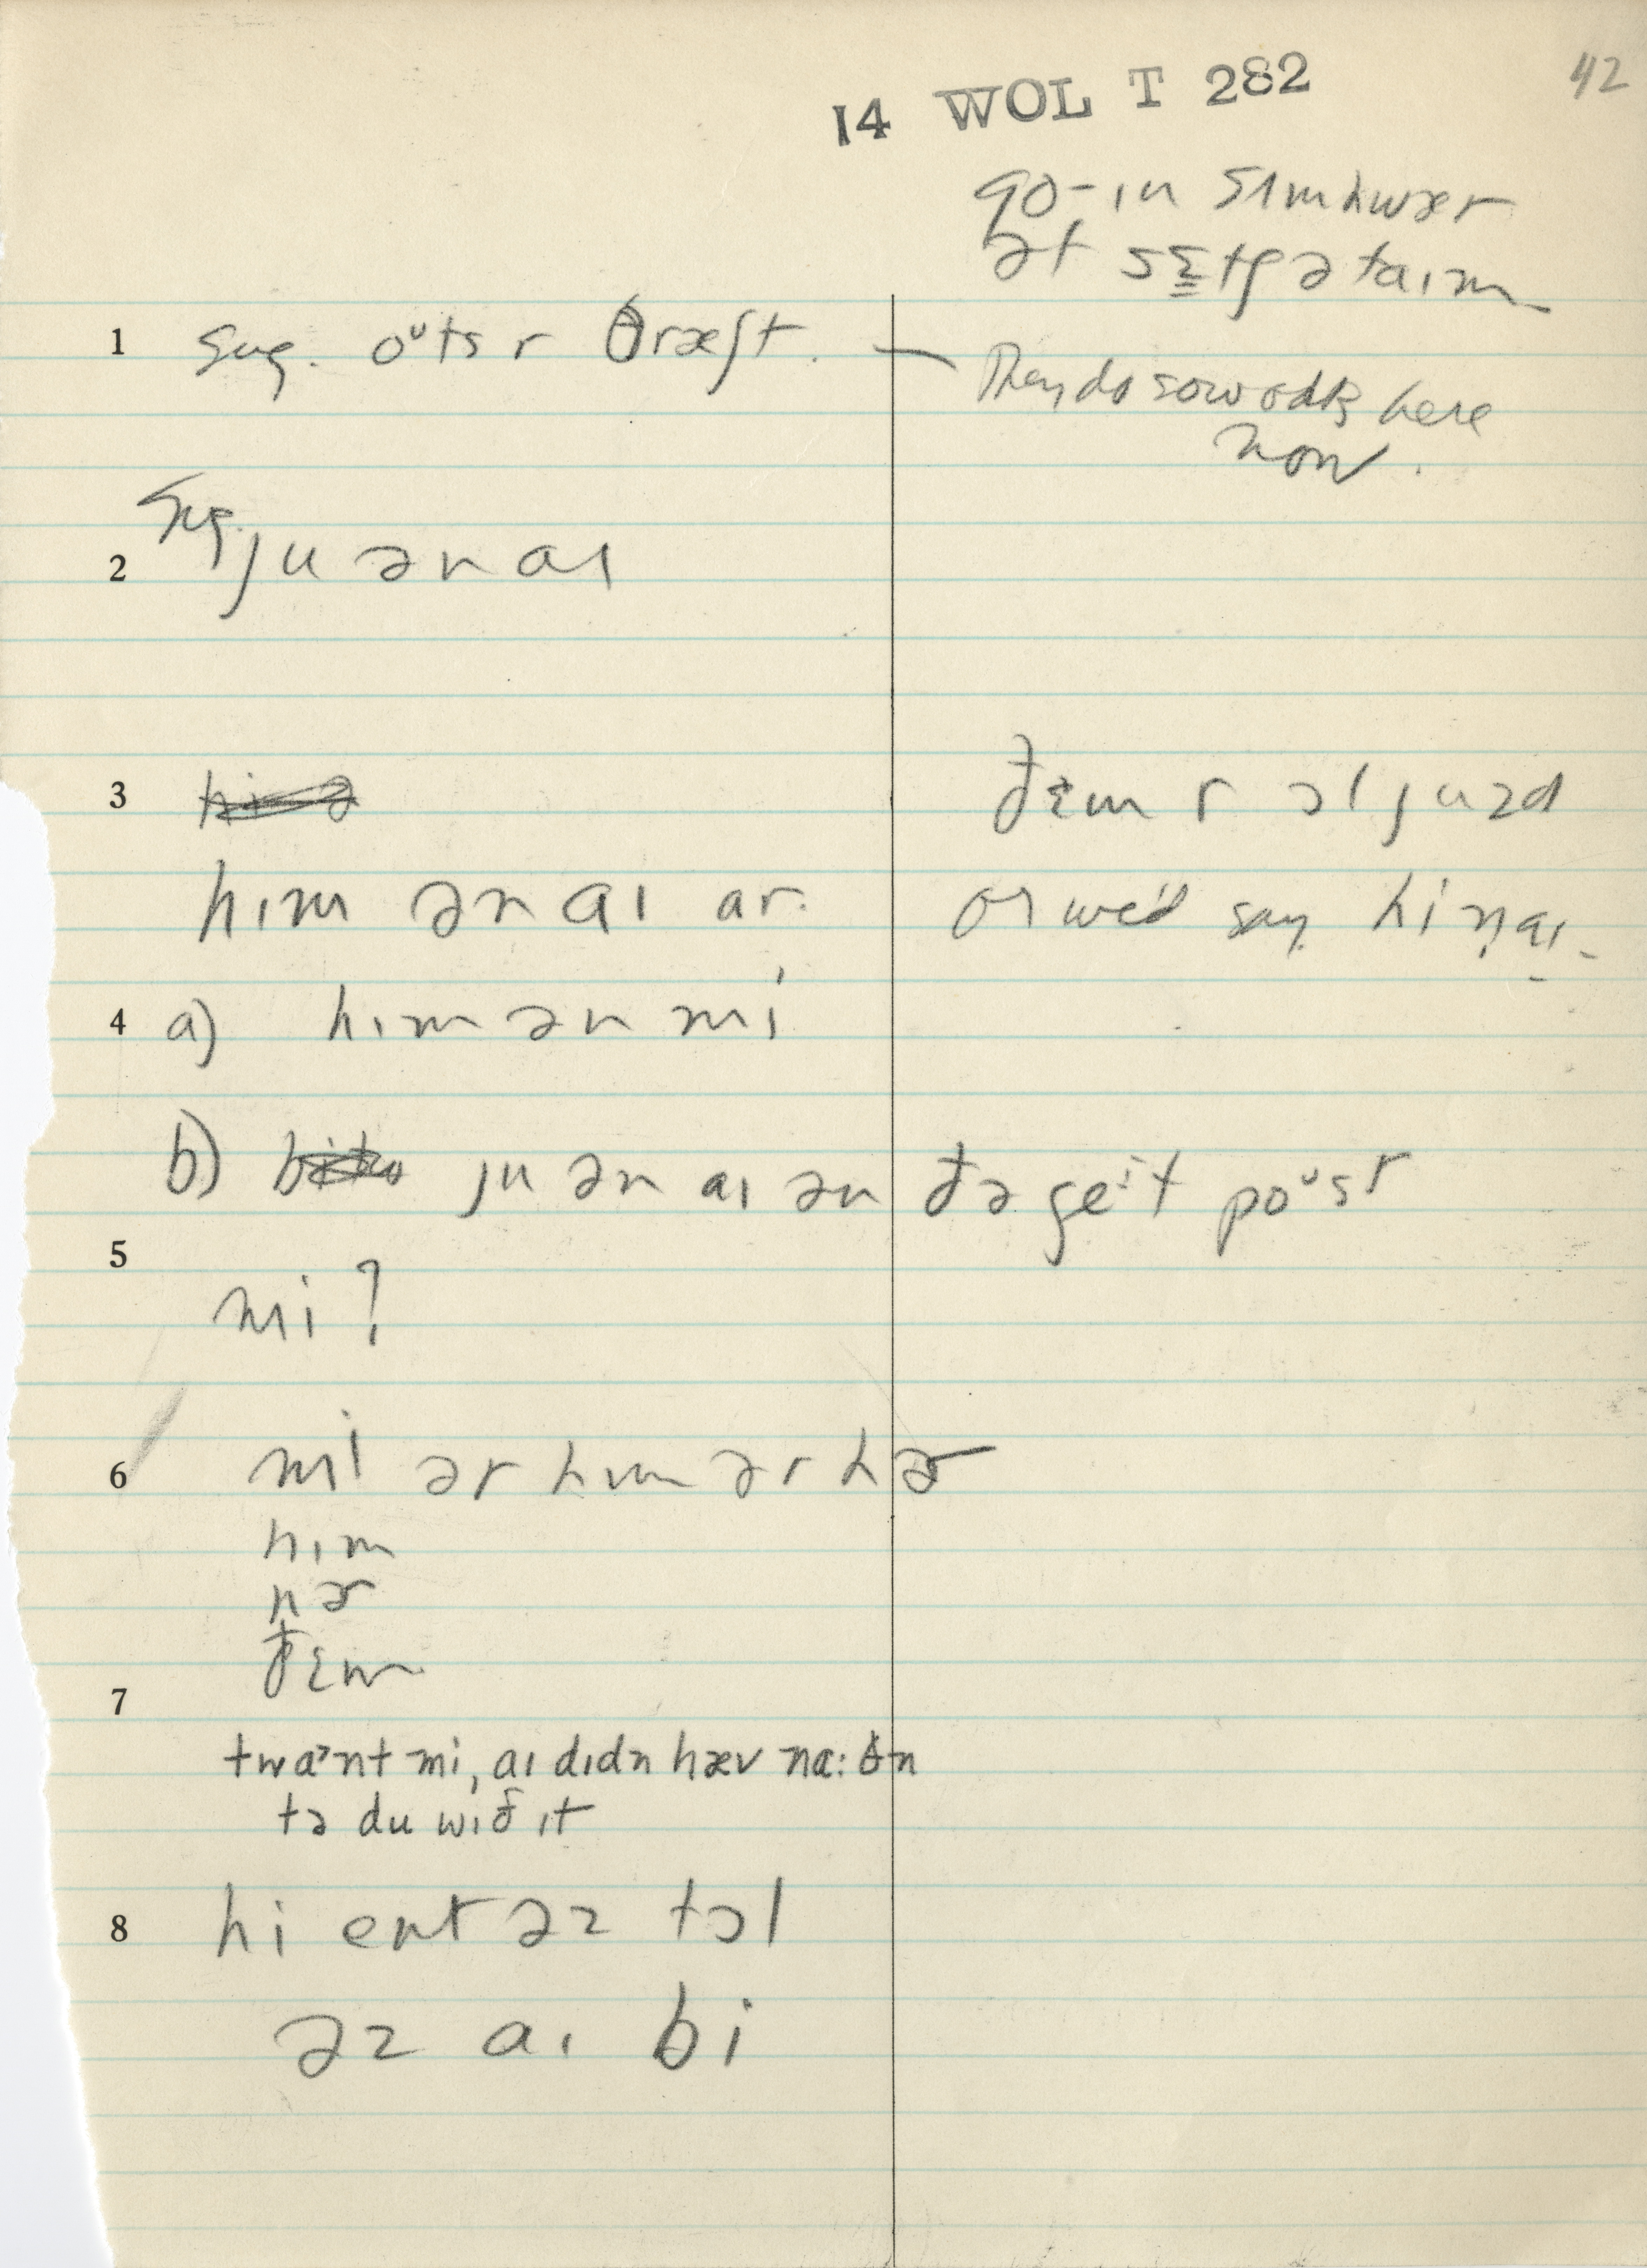 42
14 WOL T 282
go-ɪn sʌmhwær
ət sɛtʃ ə taɪm
1 Sug. oᵘts r θræʃt. — They do sow oats here
now.
2 Sug. ju ən aɪ
3 ðɛm r əl juzd
hɪm ən aɪ ar. or we'd say hi n̩ aɪ.
4 a) hɪm ən mi
b) ju ən aɪ ən ðə geⁱt poᵘst
5
mi?
6 mi ər hɪm ər hɚ
hɪm
hɚ
ðɛm
7
twaᵊnt mi, aɪ dɪdn hæv na:θn
tə du wɪð ɪt
8 hi ent əz tɔl
əz aɪ bi